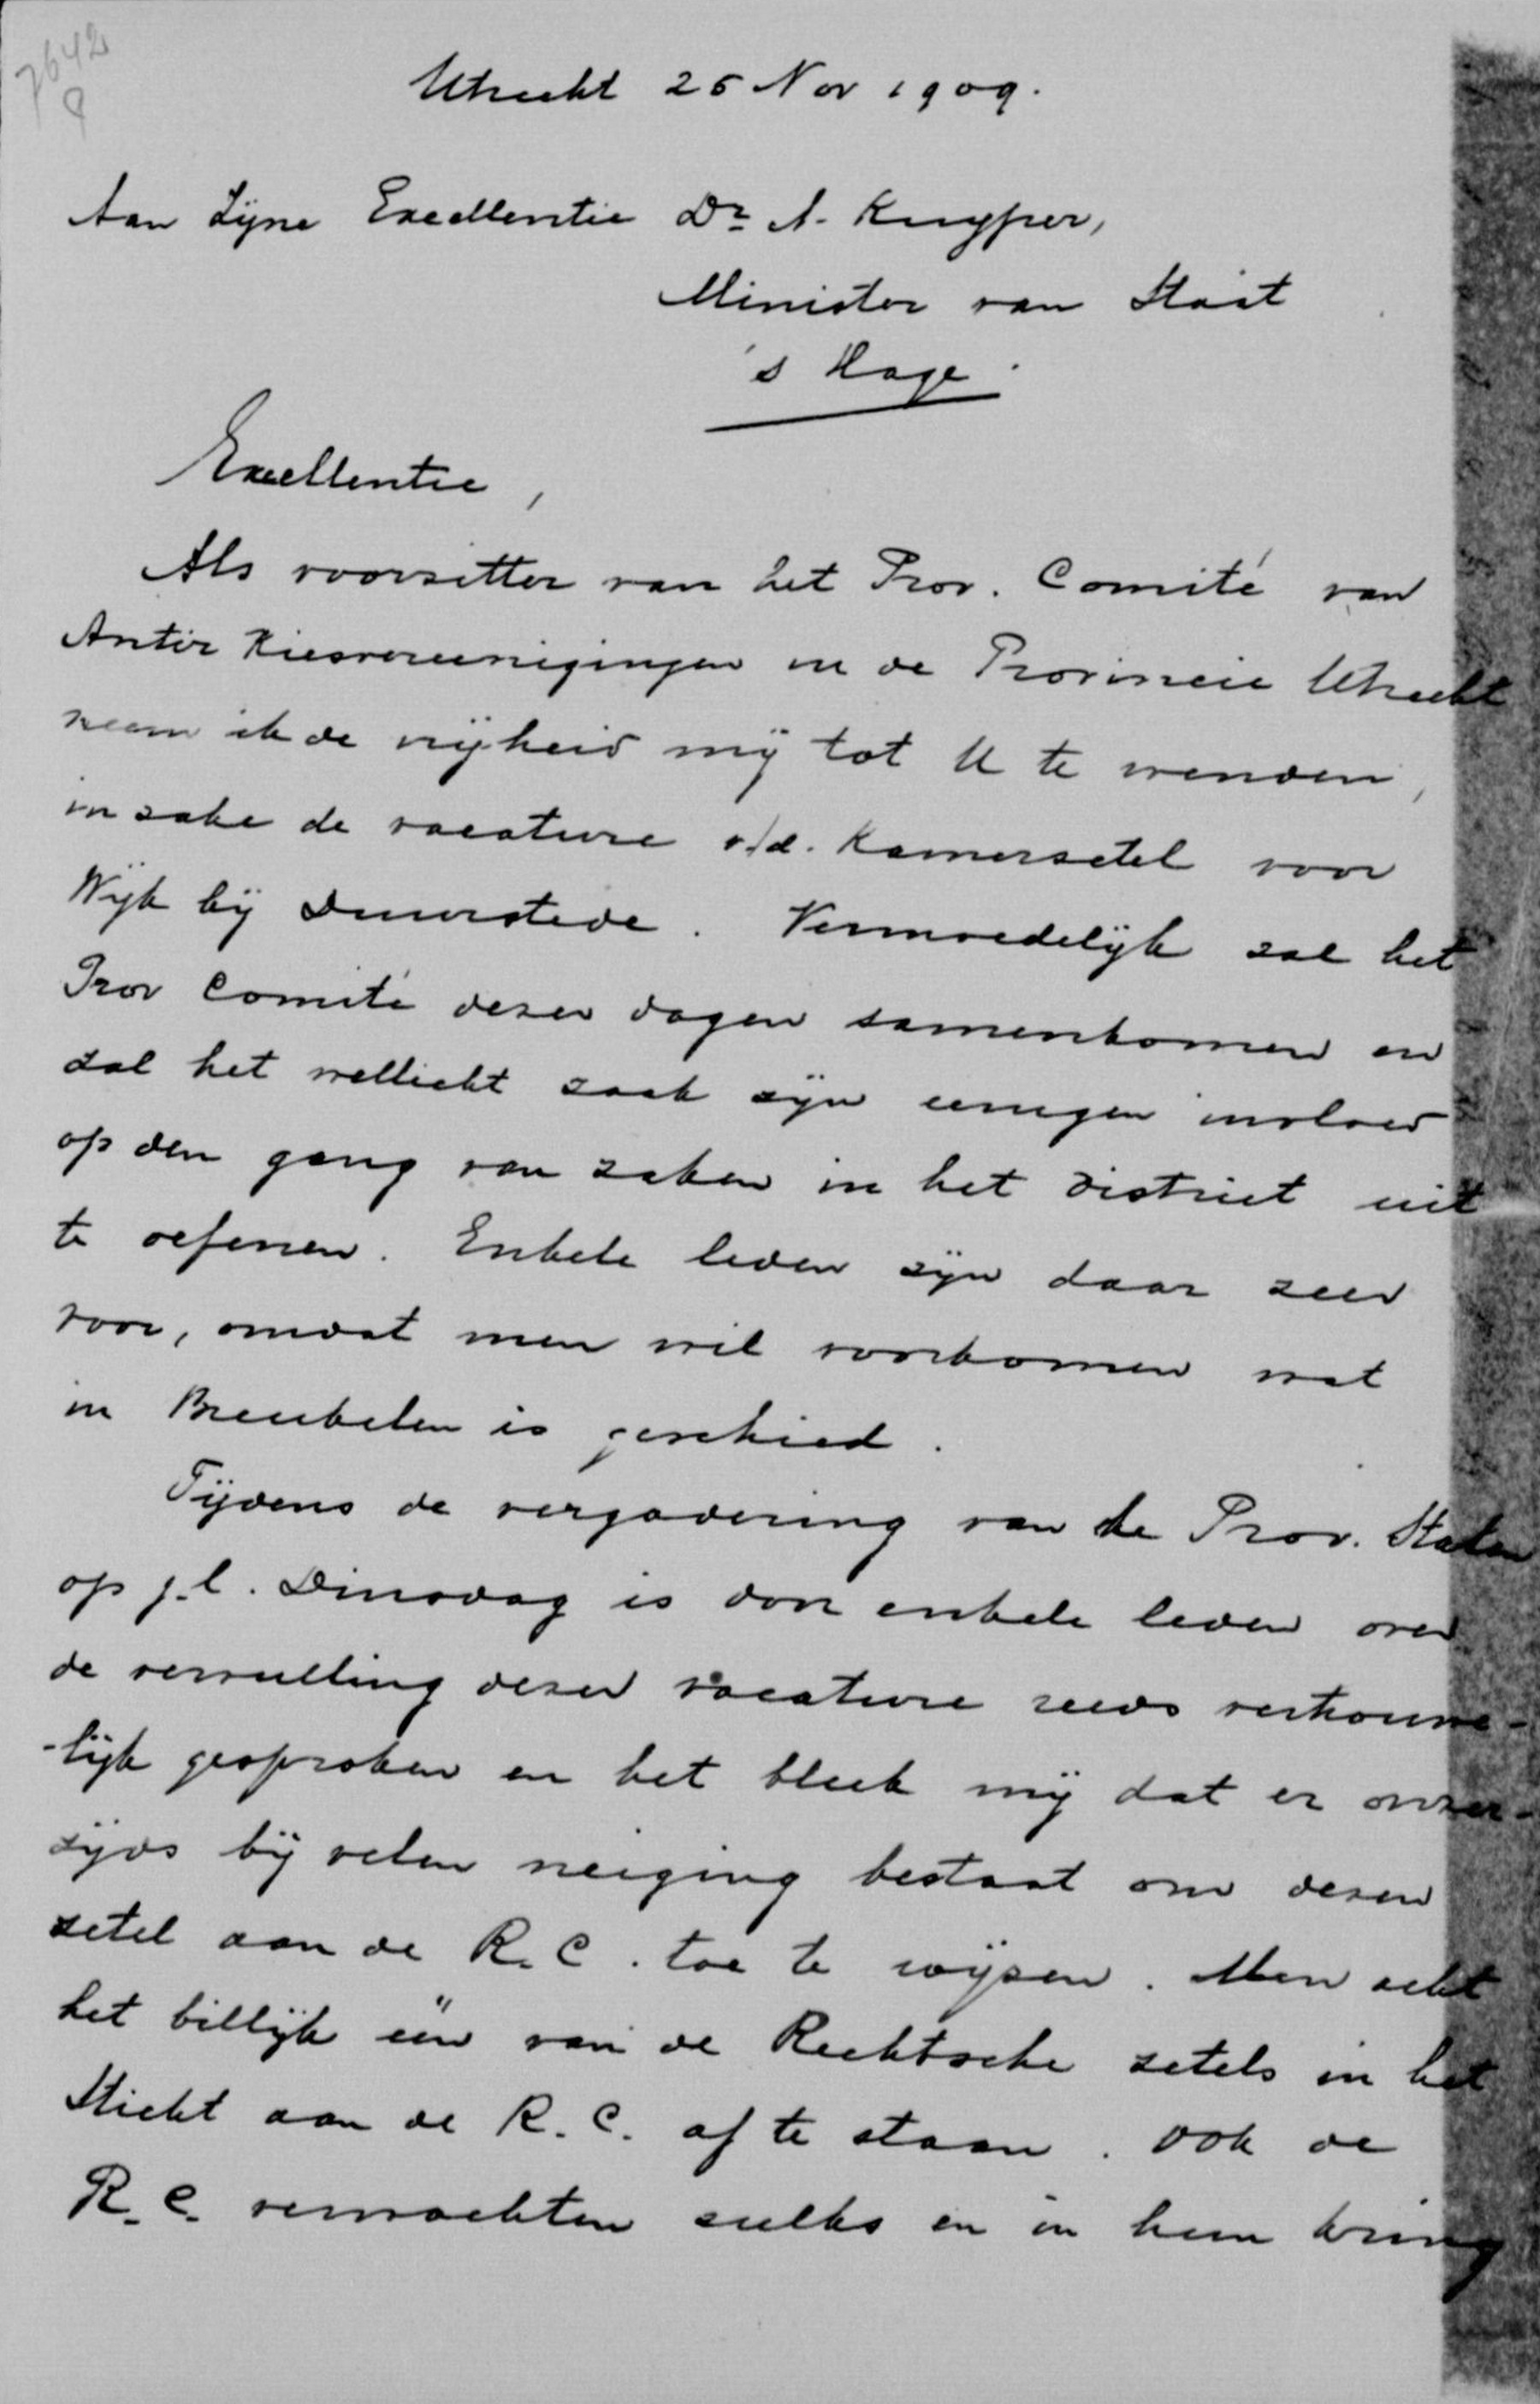 7642
8
Utrecht 25 Nov 1909.
Aan Zijne Excellentie Dr A. Kuyper,
Minister van Staat
's Hage.
Excellentie,
Als voorzitter van het Prov. Comité van
Antir Kiesvereenigingen in de Provincie Utrecht
neem ik de vrijheid mij tot U te wenden,
in zake de vacature v/d. Kamerzetel voor
Wijk bij Duurstede. Vermoedelijk zal het
Prov Comité dezer dagen samenkomen en
zal het wellicht zaak zijn eenigen invloed
op den gang van zaken in het district uit
te oefenen. Enkele leden zijn daar zeer
voor, omdat men wil voorkomen wat
in Breukelen is geschied.
Tijdens de vergadering van de Prov. Staten
op j.l. Dinsdag is door enkele leden over
de vervulling dezer vacature reeds vertrouwe-
-lijk gesproken en het bleek mij dat er onzer-
zijds bij velen neiging bestaat om dezen
zetel aan de R.C. toe te wijzen. Men acht
het billijk één van de Rechtsche zetels in het
Sticht aan de R.C. af te staan. Ook de
R.C. verwachten zulks en in hun kring